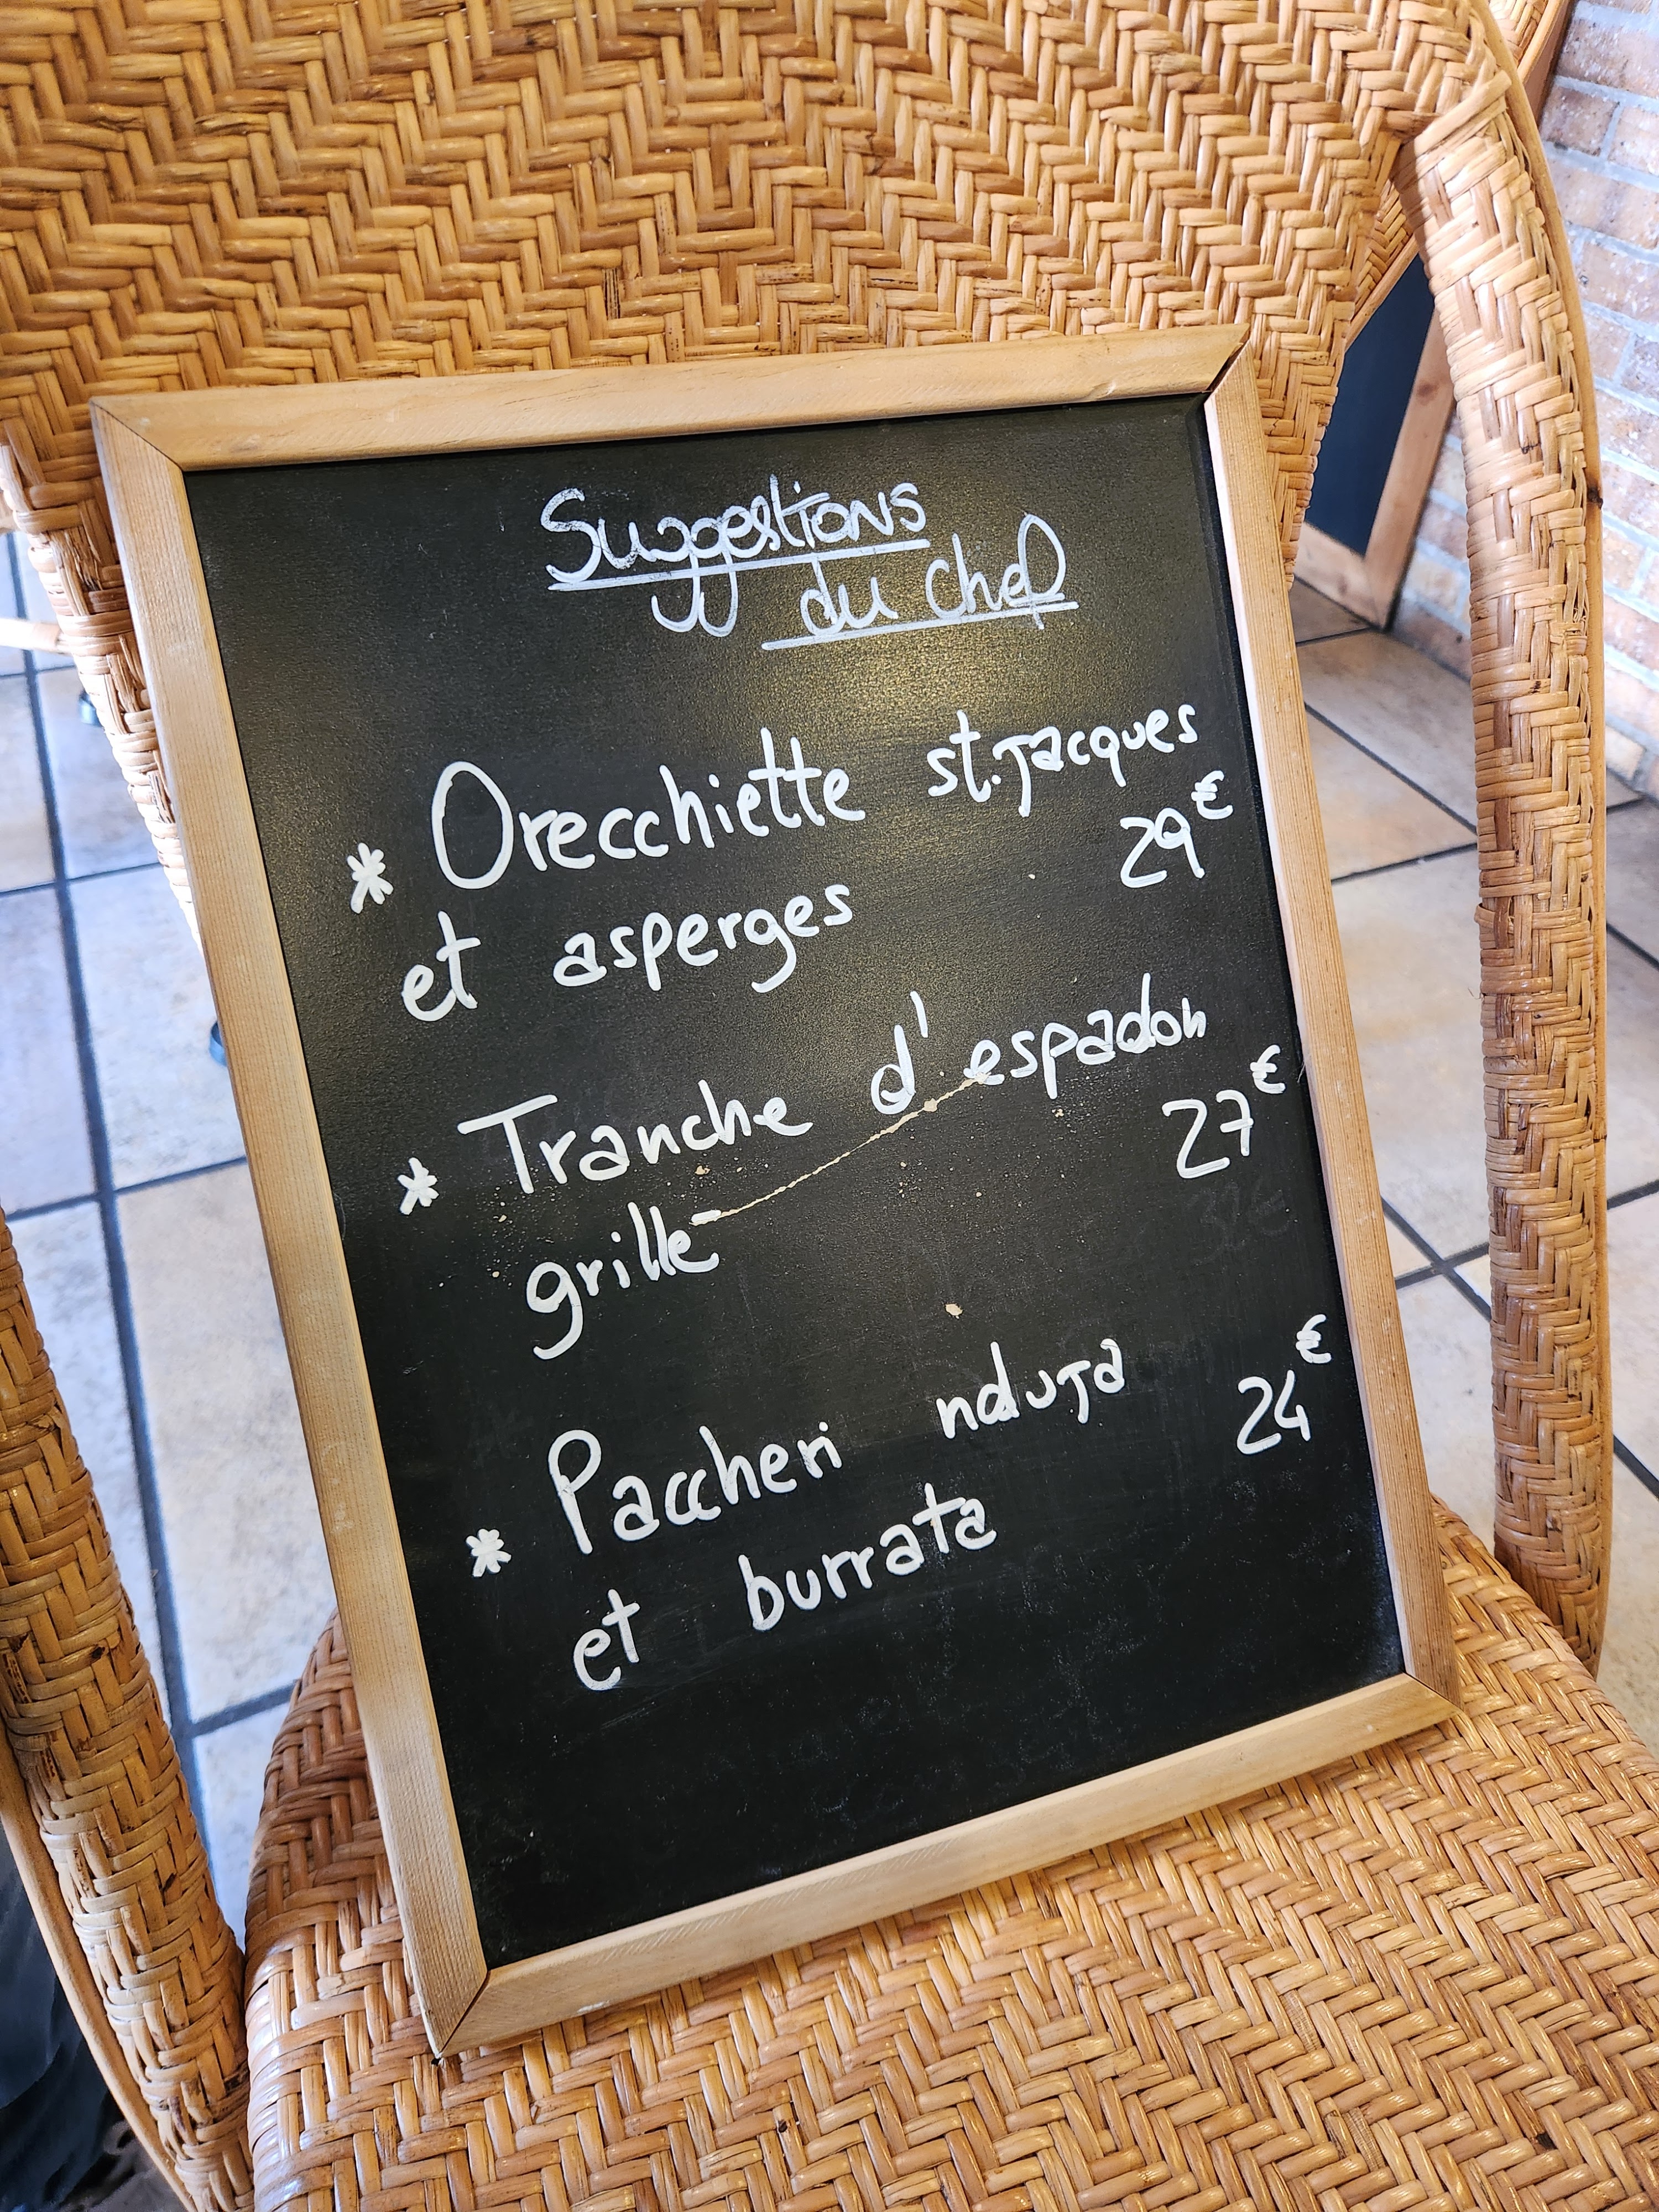 Suggestions
du chef
* Orecchiette st.Jacques
29€
et asperges
* Tranche d'espadon
27€
grillē
* Paccheri nduJa
24€
et burrata